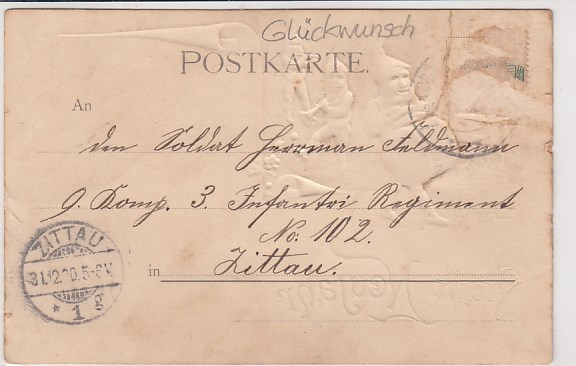 Glückwunsch
POSTKARTE.
An
den Soldat Herrman Feldmann
9. Komp. 3. Infantri Regiment
No: 102.
in Zittau.
ZITTAU
31.12.00.5-6V.
* 1 g
Neujahr